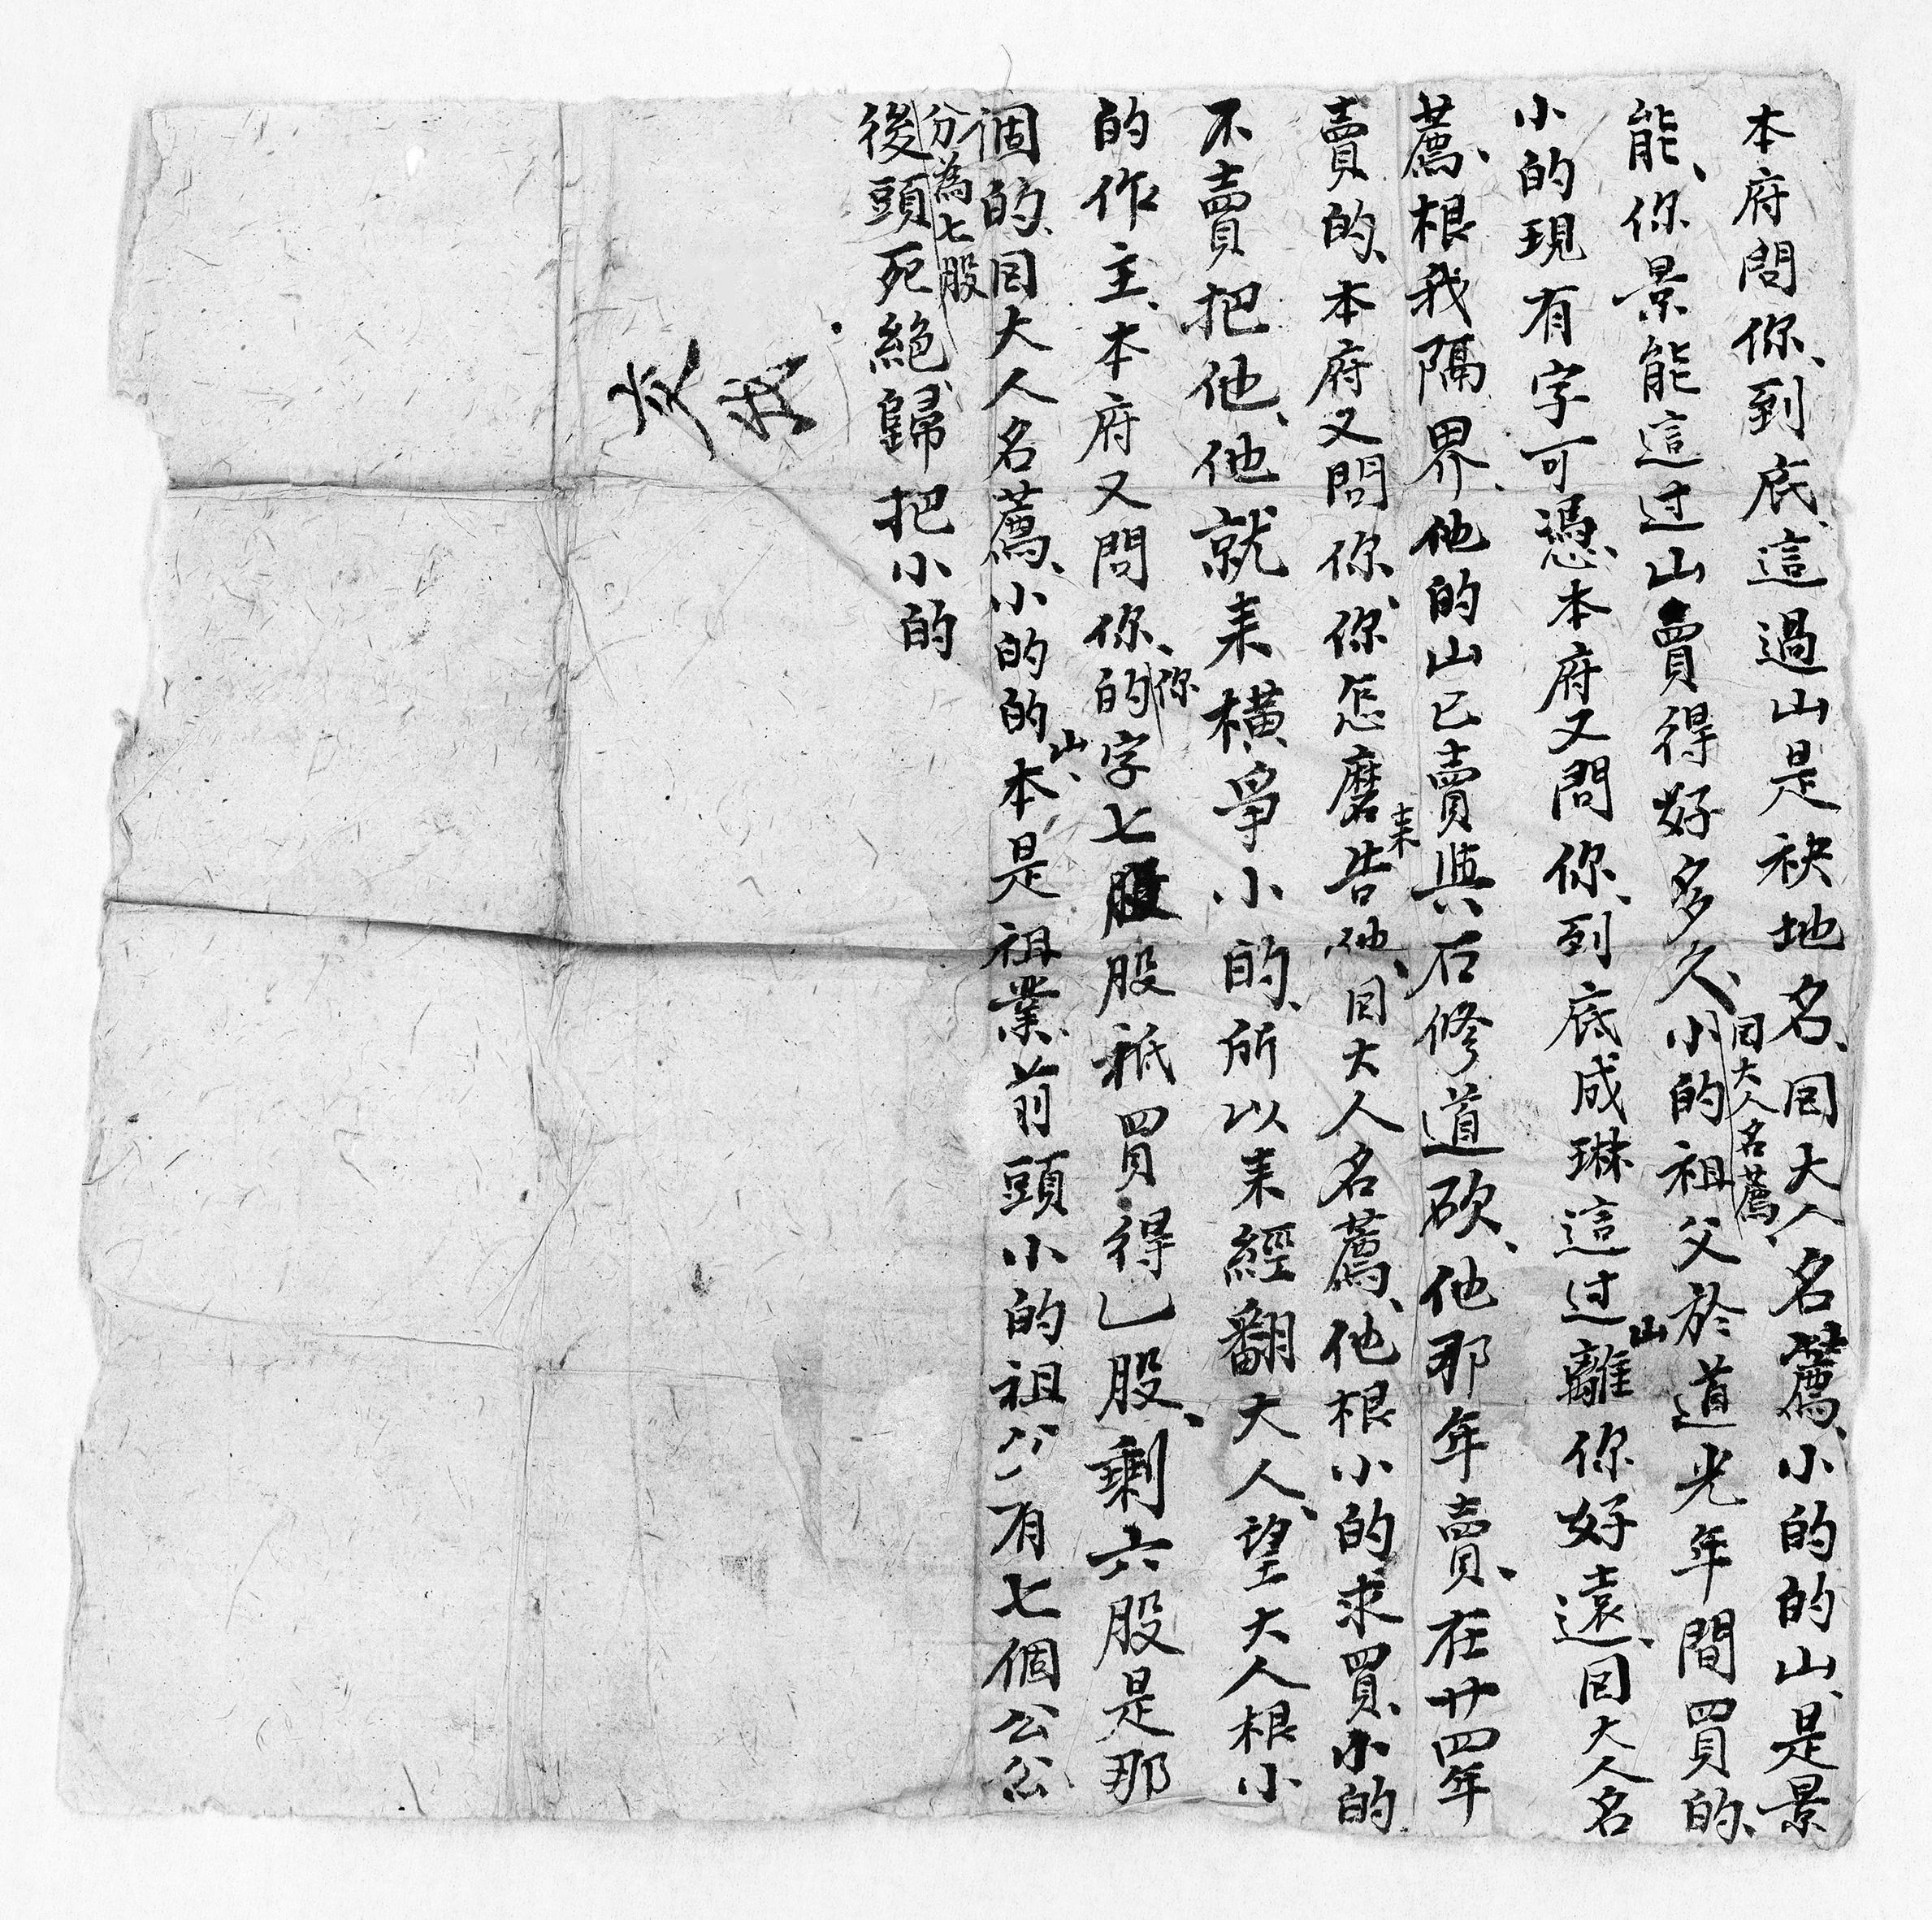 本府問你、到底、這過山是袂地名、囙大人名薦、小的的山、是景
能、你景能這过山賣得好多久、囙大人名薦、小的祖父於道光年間買的、
小的現有字可憑、本府又問你、到底成琳這过山離你好遠、囙大人名
薦、根我隔界、他的山已賣與石修道砍、他那年賣、在廿四年
賣的、本府又問你、你怎麽來告他、囙大人名薦、他根小的求買、小的
不賣把他、他就来橫爭小的、所以来經翻大人、望大人根小
的作主、本府又問你、你的字七股股祗買得乙股、剩六股是那
個的、囙大人名薦、小的的山、本是祖業、前頭小的祖公有七個公公
分為七股
後頭死絕歸把小的